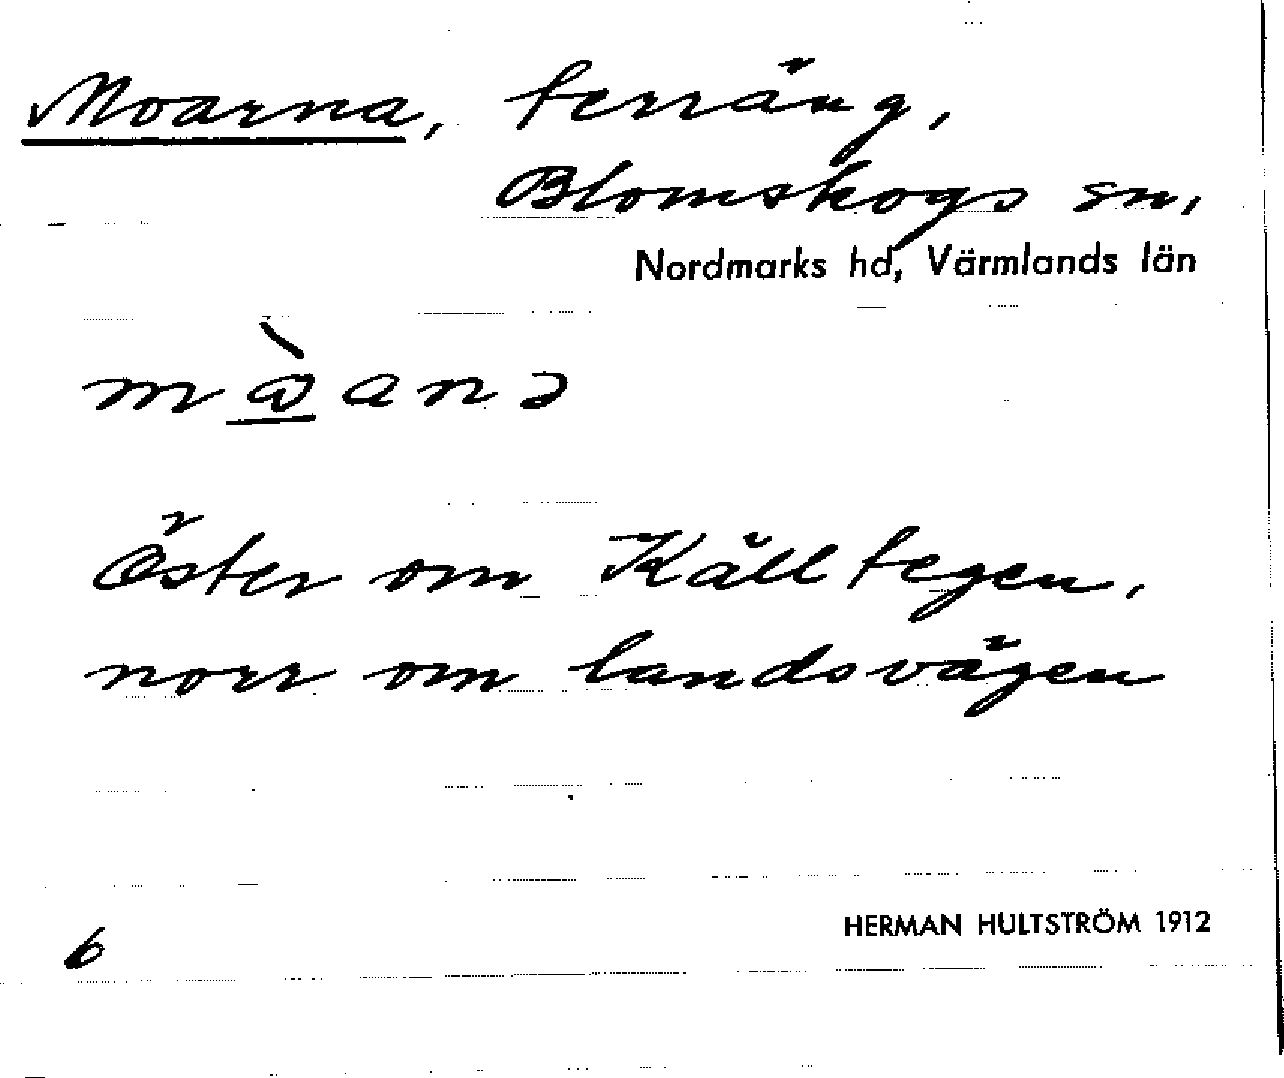 Moarna, terräng,
Blomskogs sn,
Nordmarks hd, Värmlands län
Öster om Källtegen,
norr om landsvägen
HERMAN HULTSTRÖM 1912
6